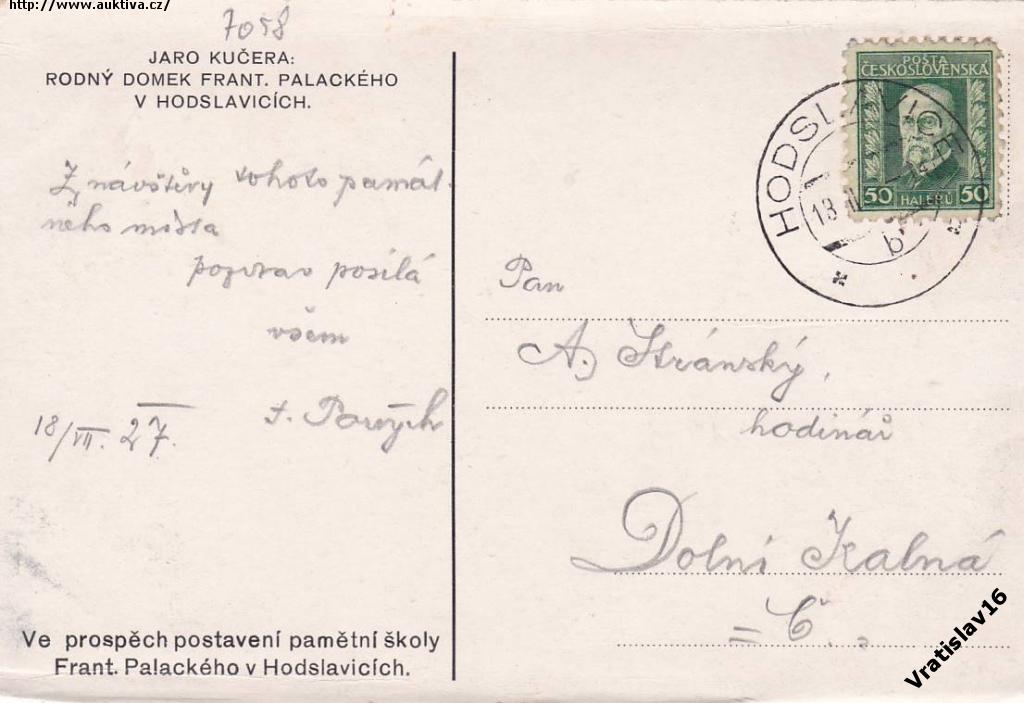 http://www.auktiva.cz/
7058
JARO KUČERA:
RODNÝ DOMEK FRANT. PALACKÉHO
V HODSLAVICÍCH.
Z návštěvy tohoto památ-
ného místa
pozdrav posílá
všem
18/VII. 27.
Ve prospěch postavení pamětní školy
Frant. Palackého v Hodslavicích.
POŠTA
ČESKOSLOVENSKÁ
50 HALÉŘŮ 50
HODSLAVICE
18
b
Pan
A. Stránský,
hodinář
Dolní Kalná
Č.
Vratislav16